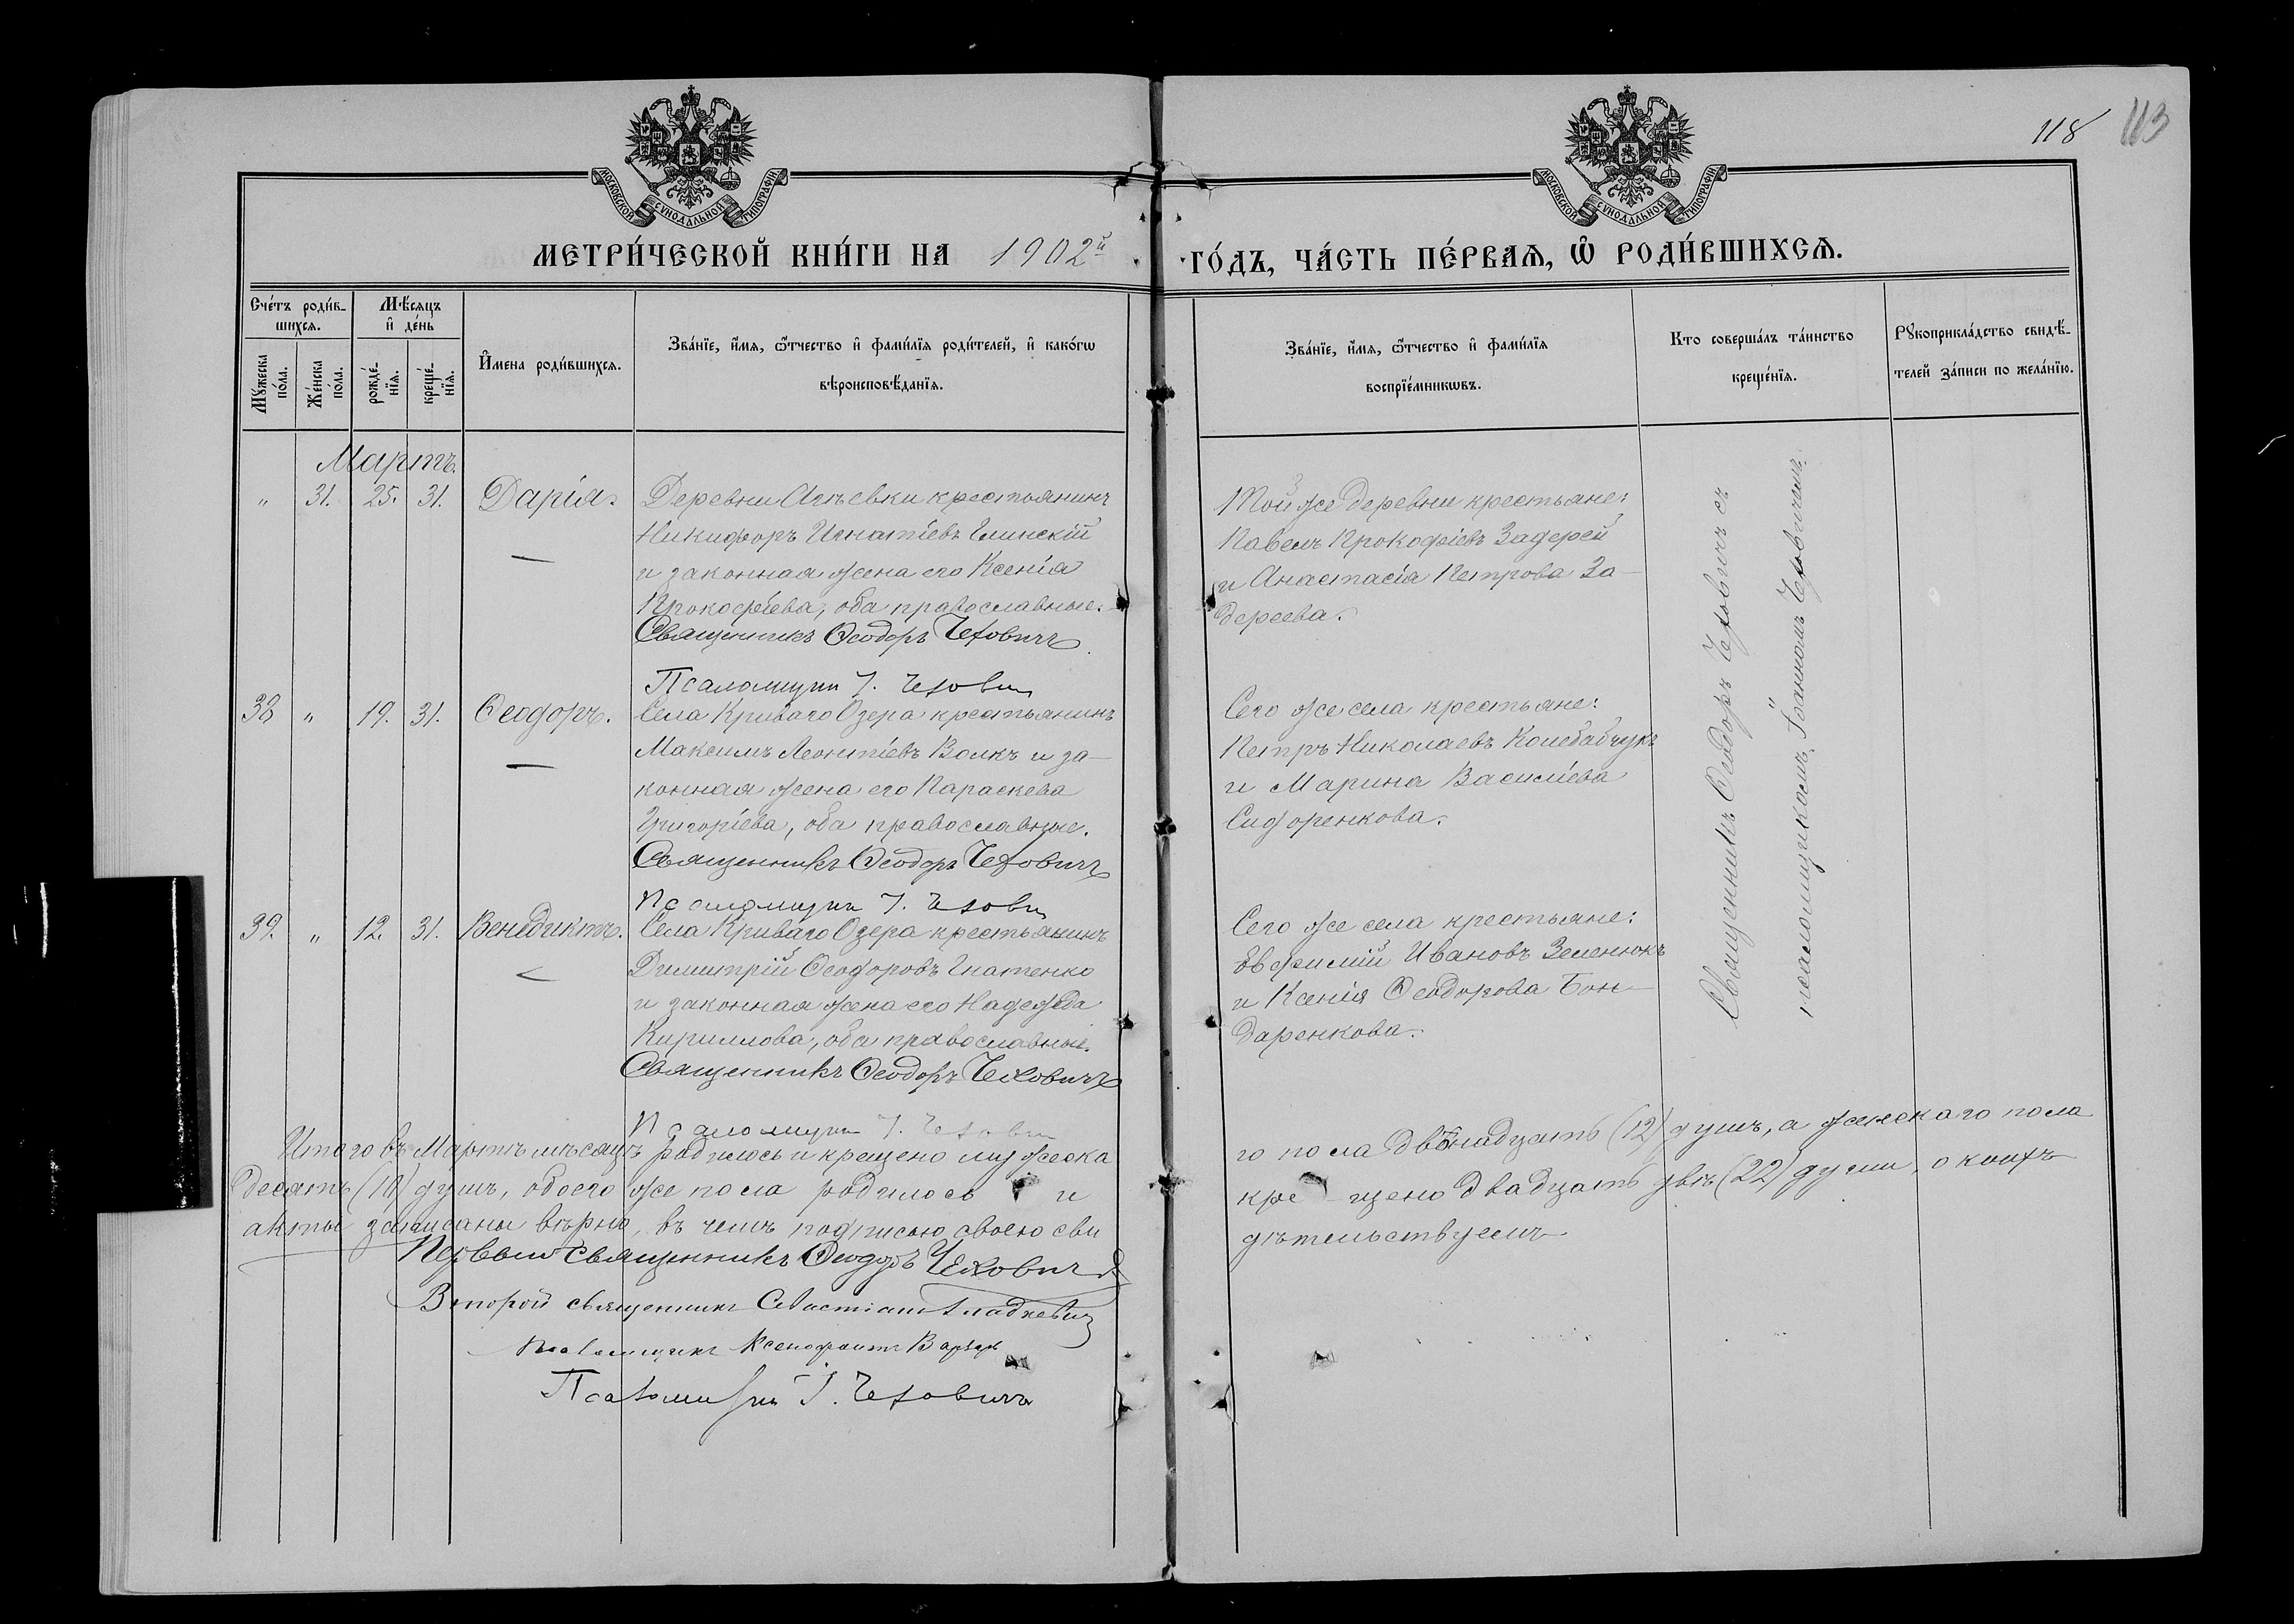 118
113
МОСКОВСКОЙ СѴНОДАЛЬНОЙ ТИПОГРАФІИ
МОСКОВСКОЙ СѴНОДАЛЬНОЙ ТИПОГРАФІИ
МЕТРИ́ЧЕСКОЙ КНИ́ГИ НА 1902й
ГО́ДЪ, ЧА́СТЬ ПЕ́РВАЯ, Ѽ РОДИ́ВШИХСѦ.
Сче́тъ роди́в-
шихсѧ.
Мꙋ́жеска по́ла.
Же́нска по́ла.
Мѣ́сѧцъ
и҆ де́нь
рожде́-
нїѧ.
креще́-
нїѧ.
И҆́мена роди́вшихсѧ.
Зва́нїе, и҆́мѧ, ѻ҆́тчество и҆ фами́лїѧ роди́телей, и҆ како́гѡ
вѣроисповѣ́данїѧ.
Зва́нїе, и҆́мѧ, ѻ҆́тчество и҆ фами́лїѧ
воспрїе́мникѡвъ.
Кто соверша́лъ та́инство
креще́нїѧ.
Рꙋкоприкла́дство свидѣ́-
телей за́писи по жела́нїю.
Мартъ.
" 31. 25. 31. Дарія.
Деревни крестьянинъ
Никифоръ Игнатіевъ
и законная жена его Ксенія
Прокофіева, оба православные.
Священникъ Ѳеодоръ Чеховичъ
Псаломщик І. Чехович
Той же деревни крестьяне:
Павелъ Прокофіевъ Задерей
и Анастасія Петрова За-
дереева.
38 " 19. 31. Ѳеодоръ.
Села Криваго Озера крестьянинъ
Максимъ Леонтіевъ Волкъ и за-
конная жена его Параскева
Григоріева, оба православные.
Священникъ Ѳеодоръ Чеховичъ
Псаломщик І. Чехович
Сего же села крестьяне:
Петръ Николаевъ Колебабчукъ
и Марина Василіева
Сидоренкова.
39. " 12. 31. Венедиктъ.
Села Криваго Озера крестьянинъ
Димитрій Ѳеодоровъ Гнатенко
и законная жена его Надежда
Кириллова, оба православные.
Священникъ Ѳеодоръ Чеховичъ
Псаломщик І. Чехович
Сего же села крестьяне:
Евфимій Ивановъ Зеленюкъ
и Ксенія Ѳеодорова Бон-
даренкова.
Священникъ Ѳеодоръ Чеховичъ съ
псаломщикомъ Іоанномъ Чеховичемъ.
Итого въ Мартѣ мѣсяцѣ родилось и крещено мужеска
го пола двѣнадцать (12) душъ, а женскаго пола
десять (10) душъ, обоего же пола родилось и
кре щено двадцать двѣ (22) души, о коихъ
акты записаны вѣрно, въ чемъ подписью своею сви
дѣтельствуемъ
Первый священникъ Ѳеодоръ Чеховичъ
Второй священникъ Севастіанъ Гладкевич
Псаломщикъ Ксенофонтъ
Псаломщик І. Чеховичъ